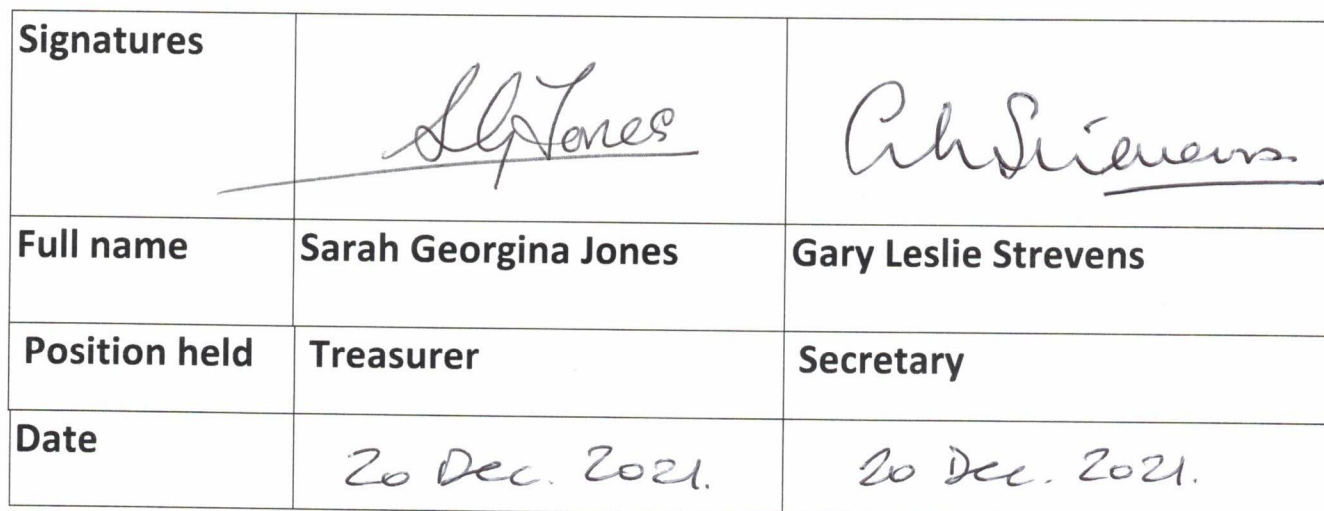 Signatures
SGJones
Full name Sarah Georgina Jones Gary Leslie Strevens
Position held Treasurer Secretary
Date 20 Dec. 2021. 20 Dec. 2021.